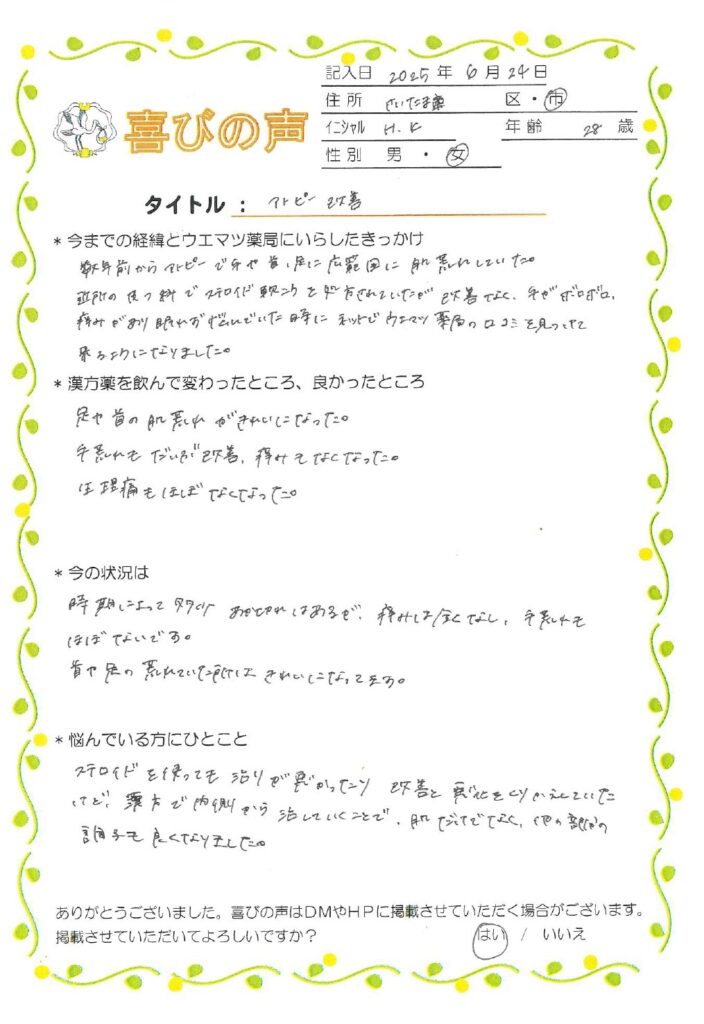 記入日 2025年 6月 24日
喜びの声
住所 さいたま 区・市
イニシャル H.K 年齢 28 歳
性別 男・女
タイトル： アトピー改善
*今までの経緯とウエマツ薬局にいらしたきっかけ
数年前からアトピーで手や首、足に広範囲に肌荒れしていた。
近所の皮フ科でステロイド軟こうを処方されていたが改善なく、手がボロボロ、
痛みがあり眠れず悩んでいた時にネットでウエマツ薬局の口コミを見つけて
来るようになりました。
*漢方薬を飲んで変わったところ、良かったところ
足や首の肌荒れがきれいになった。
手荒れもだいぶ改善、痛みもなくなった。
生理痛もほぼなくなった。
*今の状況は
時期によって多少あかぎれはあるが、痛みは全くなし、手荒れも
ほぼないです。
首や足の荒れていた所はきれいになってます。
*悩んでいる方にひとこと
ステロイドを使っても治りが悪かったり改善と悪化をくりかえしていた
けど、漢方で内側から治していくことで、肌だけでなく、他の部分の
調子も良くなりました。
ありがとうございました。喜びの声はDMやHPに掲載させていただく場合がございます。
掲載させていただいてよろしいですか？ はい / いいえ